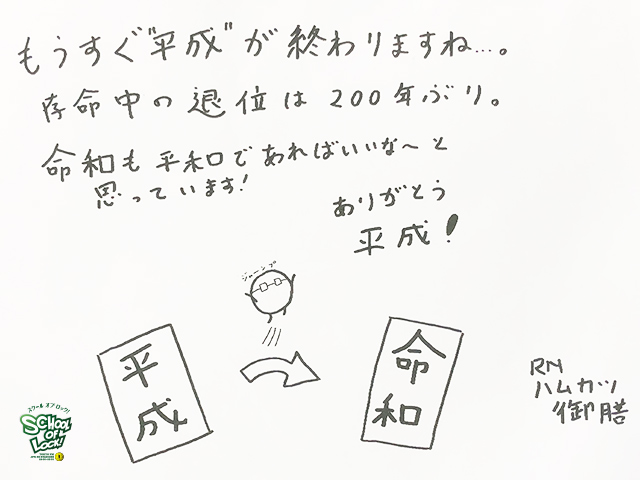 もうすぐ"平成"が終わりますね…。
存命中の退位は200年ぶり。
命和も平和であればいいな〜と
思っています!
ありがとう
平成!
ジャーンプ
平成
命和
RN
ハムカツ
御膳
スクール オブ ロック!
SCHOOL
OF
LOCK!